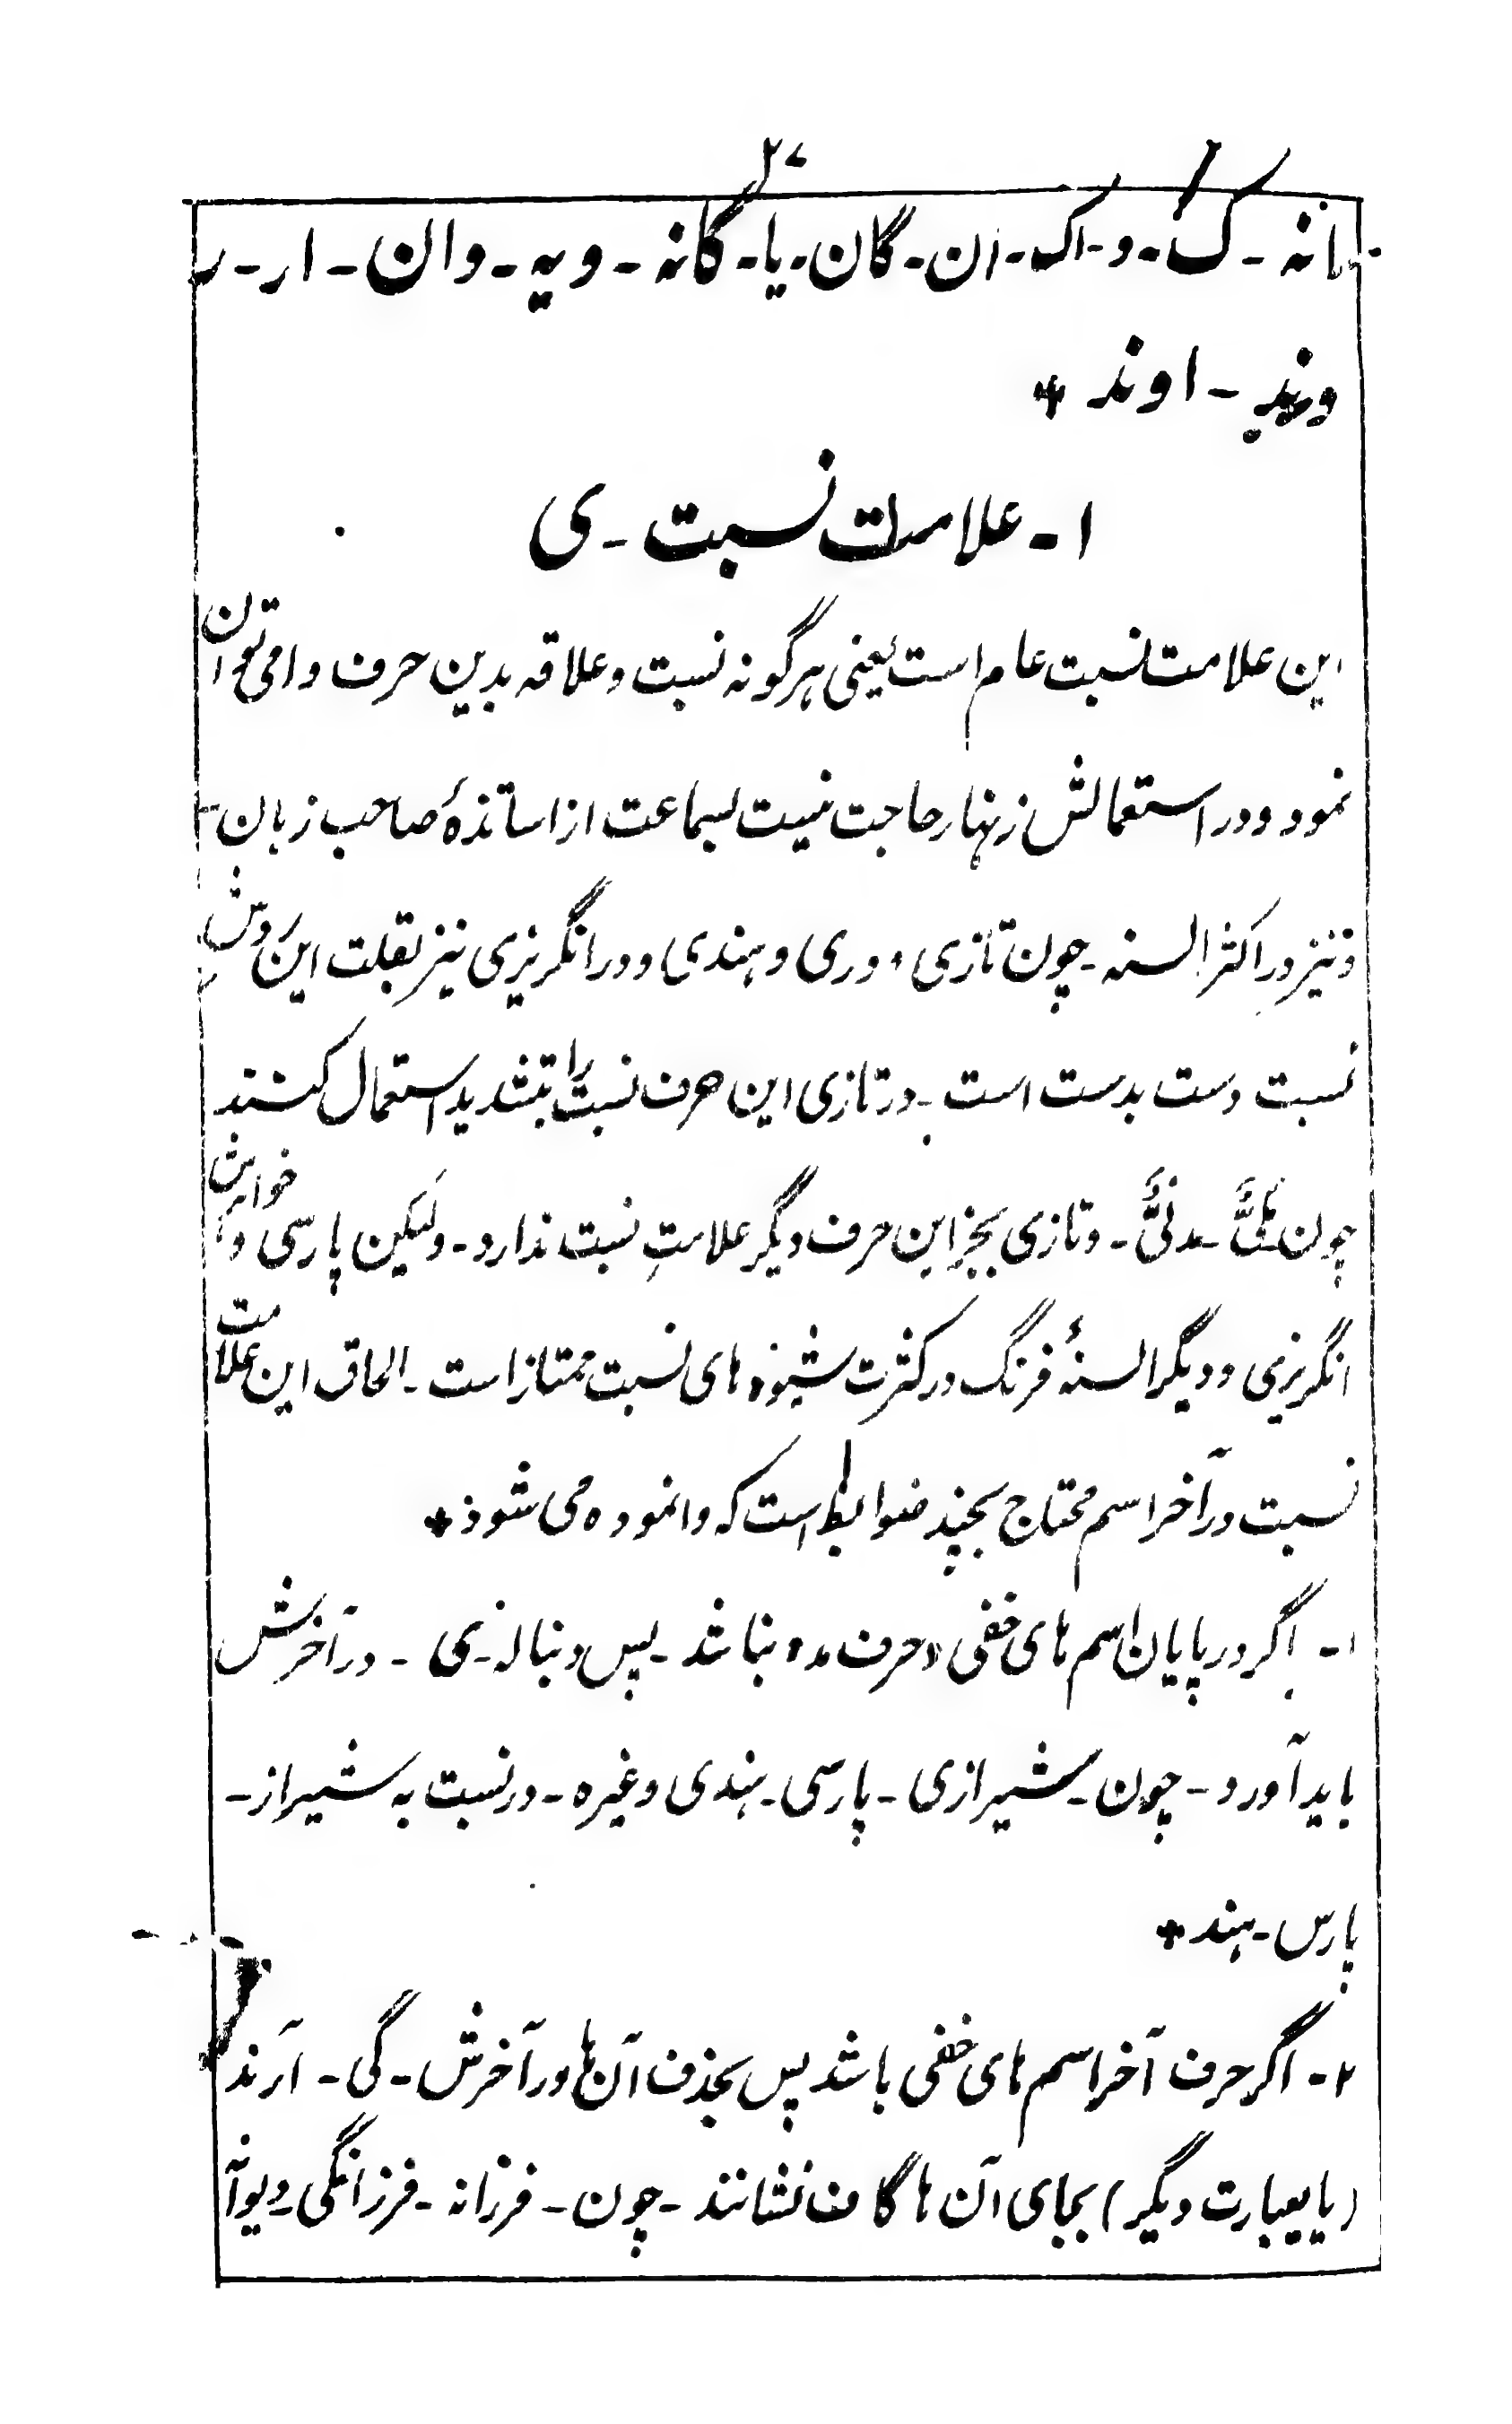 ۲۷
انه ـ ک ـ و ـ اک ـ ان ـ گان ـ یا ـ گانه ـ ویه ـ وان ـ ار ـ ر
وند ـ اوند *
۱ ـ علامت نسبت ـ ی
این علامت نسبت عام است یعنی هرگونه نسبت و علاقه بدین حرف وامی توان
نمود و در استعمالش زنهار حاجت نیست بسماعت از اساتذهٔ صاحب زبان ـ
و نیز در اکثر السنه ـ چون تازی و دری و هندی و در انگریزی نیز بقلت این روش
نسبت دست بدست است ـ در تازی این حرف نسبت را بتشدید استعمال کنند
چون مکیٌّ ـ مدنیٌّ ـ و تازی بجز این حرف دیگر علامتِ نسبت ندارد ـ ولیکن پارسی و خواهرش
انگریزی و دیگر السنهٔ فرنگ در کثرت شیوه های نسبت ممتاز است ـ الحاق این علامت
نسبت در آخر اسم محتاج بچند ضوابط است که وانموده می شود *
۱ ـ اگر در پایان اسم های خفی و حرف مده نباشد ـ پس دنباله ـ ی ـ در آخرش
باید آورد ـ چون ـ شیرازی ـ پارسی ـ هندی و غیره ـ در نسبت به شیراز ـ
پارس ـ هند *
۲ ـ اگر حرف آخر اسم های خفی باشد پس بحذف آن ها در آخرش ـ گی ـ آرند
(یا بعبارت دیگر) بجای آن ها گاف نشانند ـ چون ـ فرزانه ـ فرزانگی ـ دیوانه